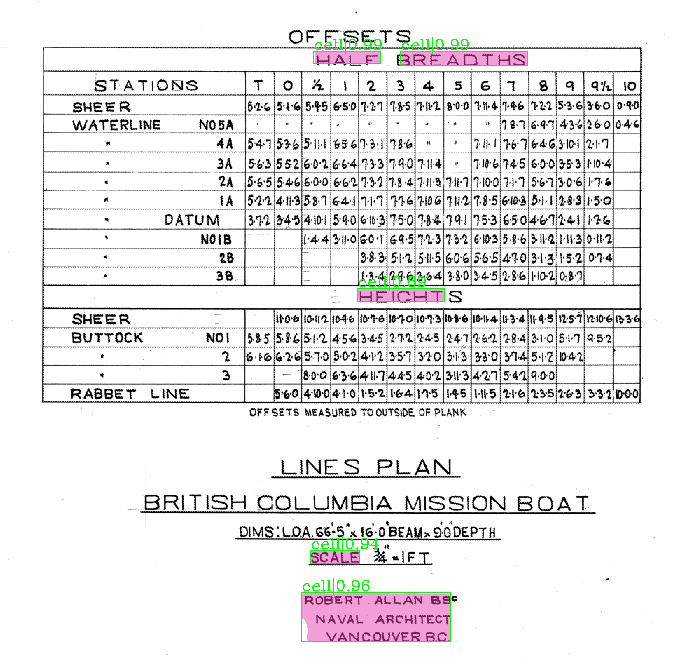 OFFSETS
cell|0.99 cell|0.99
HALF BREADTHS
STATIONS T 0 ½ 1 2 3 4 5 6 7 8 9 9½ 10
SHEER 5·2·6 5·1·6 5·9·5 6·5·0 7·2·7 7·8·5 7·11·2 8·0·0 7·11·4 7·9·6 7·2·2 5·3·6 3·6·0 0·9·0
WATERLINE NO5A " " " " " " " " " 7·8·7 6·9·7 4·3·6 2·6·0 0·4·6
" 4A 5·4·7 5·3·6 5·11·1 6·5·6 7·3·1 7·8·6 " " 7·11·1 7·6·7 6·4·6 3·10·1 2·1·7
" 3A 5·6·3 5·5·2 6·0·2 6·6·4 7·3·3 7·9·0 7·11·4 " 7·10·6 7·4·5 6·0·0 3·5·3 1·10·4
" 2A 5·6·5 5·4·6 6·0·0 6·6·2 7·3·2 7·8·4 7·11·3 7·11·7 7·10·0 7·1·7 5·6·7 3·0·6 1·7·6
" 1A 5·2·2 4·11·3 5·8·7 6·4·1 7·1·7 7·7·6 7·10·6 7·11·2 7·8·5 6·10·3 5·1·1 2·8·3 1·5·0
" DATUM 3·7·2 3·4·5 4·10·1 5·9·0 6·10·3 7·5·0 7·8·4 7·9·1 7·5·3 6·5·0 4·6·7 2·4·1 1·2·6
" NO1B 1·4·4 3·11·0 6·0·1 6·9·5 7·2·3 7·3·2 6·10·3 5·8·6 3·11·2 1·11·3 0·11·2
" 2B 3·8·3 5·1·2 5·11·5 6·0·6 5·6·5 4·7·0 3·1·3 1·5·2 0·7·4
" 3B 1·3·4 2·9·6 2·6·4 3·8·0 3·4·5 2·8·6 1·10·2 0·8·7
HEIGHTS
SHEER 11·0·6 10·11·2 10·9·6 10·7·6 10·7·0 10·7·3 10·8·6 10·11·4 11·3·4 11·9·5 12·5·7 12·10·6 13·3·6
BUTTOCK NO1 5·8·5 5·8·6 5·1·2 4·5·6 3·4·5 2·7·2 2·4·5 2·4·7 2·6·2 2·8·4 3·1·0 5·1·7 9·5·2
" 2 6·1·6 6·2·6 5·7·0 5·0·2 4·1·2 3·5·7 3·2·0 3·1·3 3·3·0 3·7·4 5·1·2 10·4·2
" 3 — 8·0·0 6·3·6 4·11·7 4·4·5 4·0·2 3·11·3 4·2·7 5·4·2 9·0·0
RABBET LINE 5·6·0 4·10·0 4·1·0 1·5·2 1·6·4 1·7·5 1·9·5 1·11·5 2·1·6 2·3·5 2·6·3 3·3·2 10·0·0
OFFSETS MEASURED TO OUTSIDE OF PLANK
LINES PLAN
BRITISH COLUMBIA MISSION BOAT
DIMS: L.O.A. 66'-5" x 16'·0" BEAM x 9'·0" DEPTH
cell|0.94
SCALE ¾" = 1 FT
cell|0.96
ROBERT ALLAN BSc
NAVAL ARCHITECT
VANCOUVER B.C.